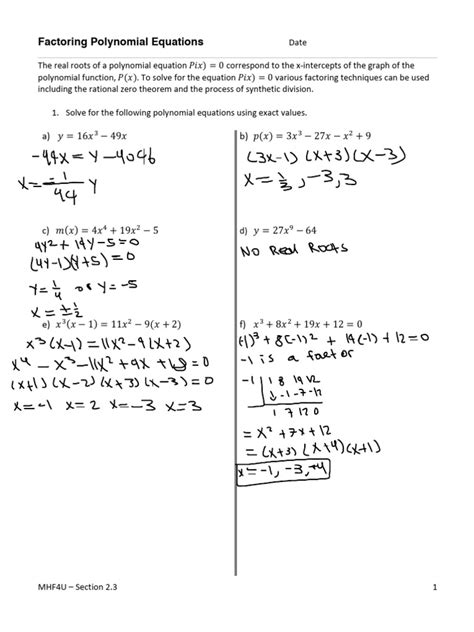 Factoring Polynomial Equations Date
The real roots of a polynomial equation P(x) = 0 correspond to the x-intercepts of the graph of the
polynomial function, P(x). To solve for the equation P(x) = 0 various factoring techniques can be used
including the rational zero theorem and the process of synthetic division.
1. Solve for the following polynomial equations using exact values.
a) y = 16x³ − 49x
-49x = y - 4096
x = -1/49 y
b) p(x) = 3x³ − 27x − x² + 9
(3x-1) (x+3)(x-3)
x = 1/3, -3, 3
c) m(x) = 4x⁴ + 19x² − 5
4y² + 19y - 5 = 0
(4y-1)(y+5) = 0
y = 1/4 or y = -5
x = ±1/2
d) y = 27x⁹ − 64
No Real Roots
e) x³(x − 1) = 11x² − 9(x + 2)
x³(x-1) = 11x² - 9(x+2)
x⁴ - x³ - 11x² + 9x + 18 = 0
(x+1)(x-2)(x+3)(x-3) = 0
x = -1 x = 2 x = -3 x = 3
f) x³ + 8x² + 19x + 12 = 0
(-1)³ + 8(-1)² + 19(-1) + 12 = 0
-1 is a factor
-1 | 1 8 19 12
↓ -1 -7 -12
1 7 12 0
= x² + 7x + 12
= (x+3)(x+4)(x+1)
x = -1, -3, +4
MHF4U – Section 2.3 1